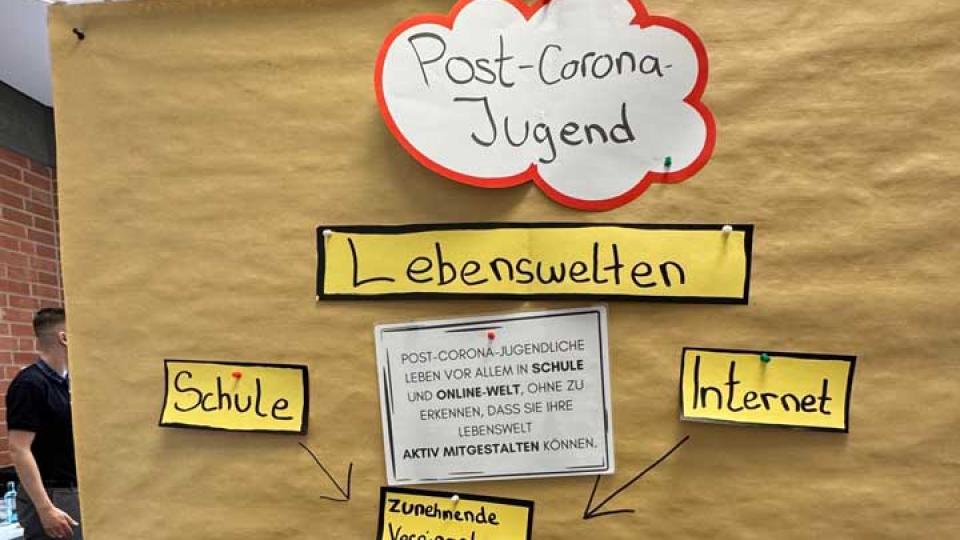 Post-Corona-
Jugend
Lebenswelten
Schule
POST-CORONA-JUGENDLICHE
LEBEN VOR ALLEM IN SCHULE
UND ONLINE-WELT, OHNE ZU
ERKENNEN, DASS SIE IHRE
LEBENSWELT
AKTIV MITGESTALTEN KÖNNEN.
Internet
zunehmende